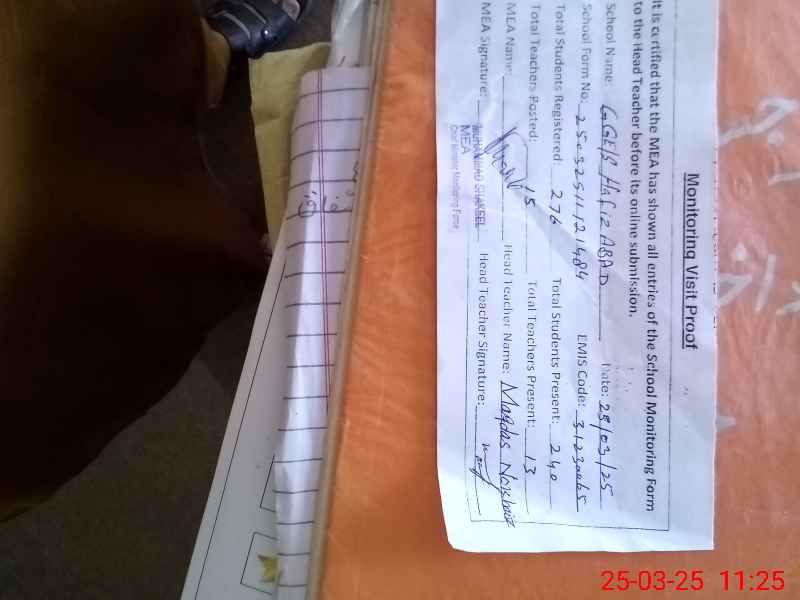 Monitoring Visit Proof
It is certified that the MEA has shown all entries of the School Monitoring Form
to the Head Teacher before its online submission.
School Name: GGE/S Hafiz ABAD Date: 25/03/25
School Form No: EMIS Code:
Total Students Registered: 276 Total Students Present: 240
Total Teachers Posted: 15 Total Teachers Present: 13
MEA Name: Head Teacher Name:
MEA Signature: Head Teacher Signature:
MUHAMMAD SHAKEEL
MEA
Chief Minister Monitoring Force
25-03-25 11:25